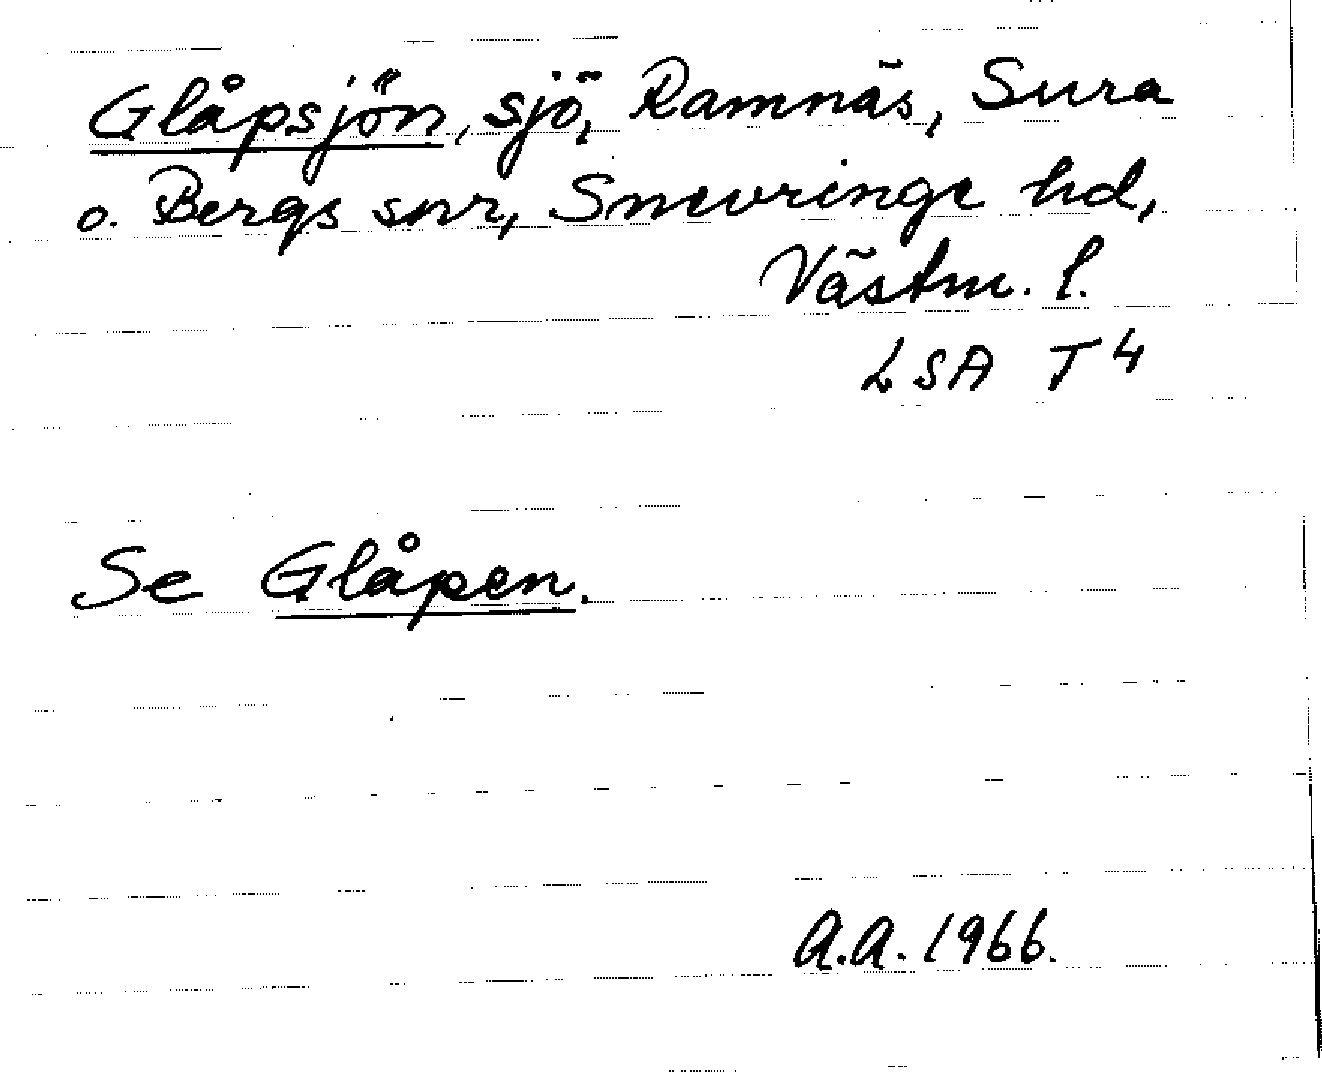 Glåpsjön, sjö, Ramnäs, Sura
o. Bergs snr, Snevringe hd,
Västm. l.
LSA T 4
Se Glåpen.
A.A. 1966.